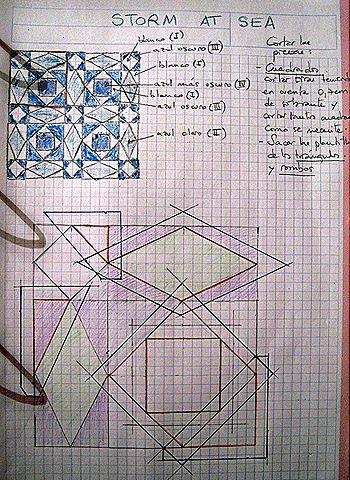 STORM AT SEA
blanco (I)
azul oscuro (III)
blanco (I)
azul más oscuro (IV)
blanco (I)
azul oscuro (III)
azul claro (II)
Cortar las
piezas:
- Cuadrados
cortar tiras teniendo
en cuenta 0,7cm
de sobrante y
cortar tantos cuadrados
como se necesite.
- Sacar las plantillas
de los triangulos
y rombos